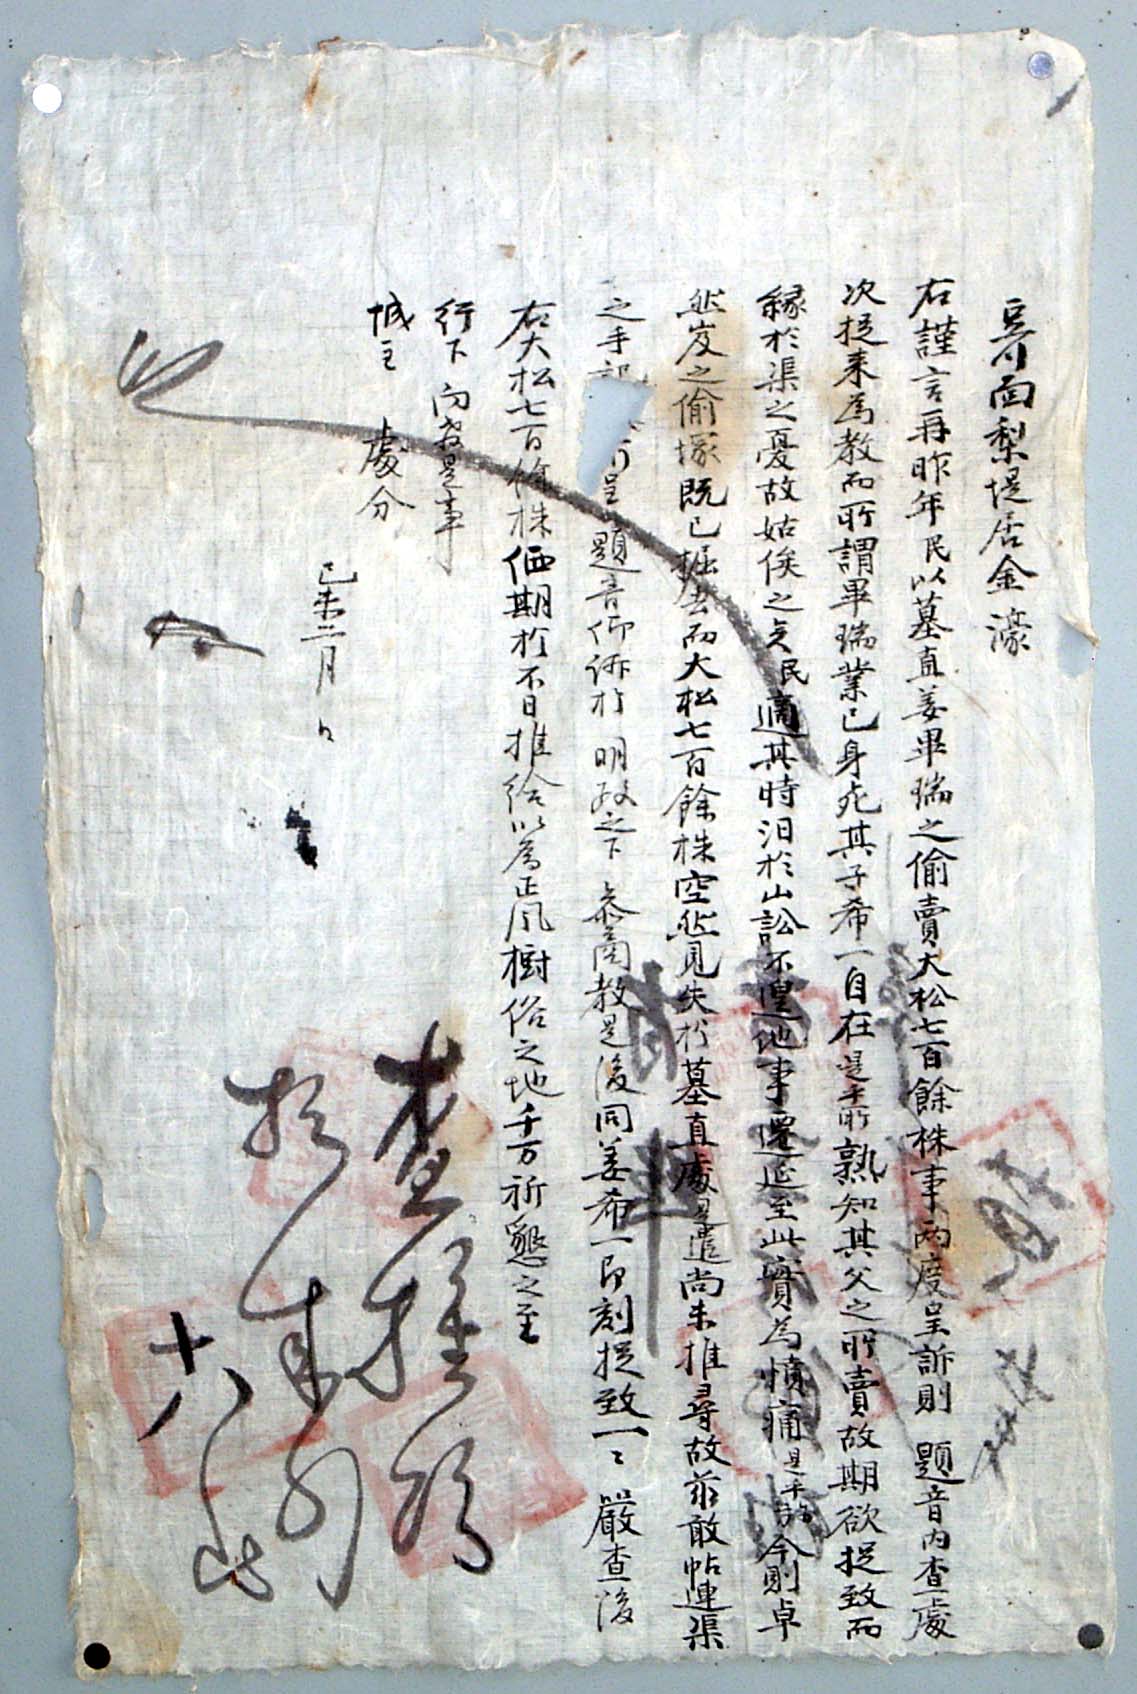 豆川面梨堤居金濠
右謹言再昨年民以墓直姜畢瑞之偷賣大松七百餘株事兩度呈訴則 題音內查處
次捉來爲敎而所謂畢瑞業已身死其子希一自在是乎所熟知其父之所賣故期欲捉致而
緣於渠之憂故姑俟之矣民適其時汨於山訟不遑他事遷延至此實爲憤痛是乎所今則卓
然岌之偷塚旣已掘去而大松七百餘株空然見失於墓直處是遣尙未推尋故玆敢帖連渠
之手記 呈 題音仰訴於 明政之下 參商敎是後同姜希一卽刻捉致一一 嚴查後
右大松七百餘株価期於不日推給以爲正風樹俗之地千万祈懇之至
行下向敎是事
城主 處分
己未二月 日
查推次
捉來向
事
十八